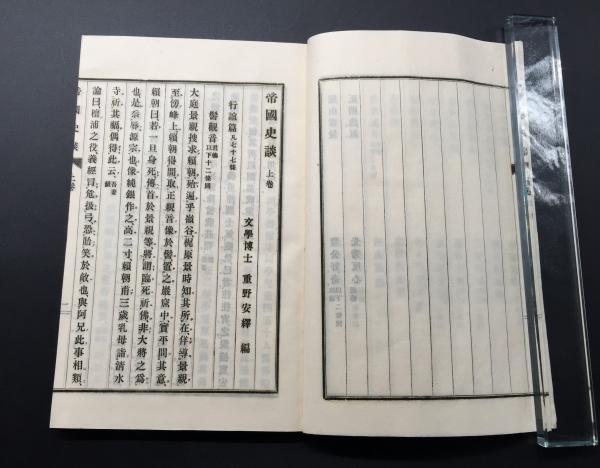 帝國史談 上卷
文學博士 重野安繹 編
行誼篇 凡七十七條
髻觀音 君德 以下十二條同
大庭景親搜求賴朝、殆遍乎嶺谷、梶原景時知其所在、佯導景親
至傍峰上、賴朝得間、取正觀音像於髻、置之巖窟中、實平問其意、
賴朝曰、若一旦身死、傳首於景親等、將謂臨死祈佛、非大將之爲
也、是辱源宗也、像純銀作之、高二寸、賴朝甫三歲、乳母詣清水
寺、祈其福、偶得此云、吾妻鏡
論曰、檀浦之役、義經冒危扱弓、恐貽笑於敵也、與阿兄此事相類、
帝國史談 上卷
一